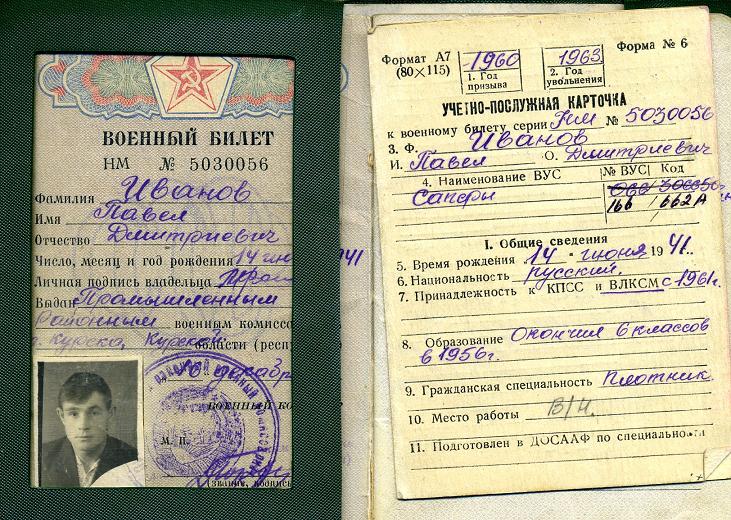 ВОЕННЫЙ БИЛЕТ
НМ № 5030056
Фамилия Иванов
Имя Павел
Отчество Дмитриевич
Число, месяц и год рождения 14 июн 41
Личная подпись владельца
Выдан Промышленным
Районным военным комисса
г. Курска, Курской области (респу
декабр
ВОЕННЫЙ КО
М. П.
(звание, подпись
Формат А7
(80×115)
1960
1. Год
призыва
1963
2. Год
увольнения
Форма № 6
УЧЕТНО-ПОСЛУЖНАЯ КАРТОЧКА
к военному билету серии НМ № 5030056
3. Ф. Иванов
И. Павел О. Дмитриевич
4. Наименование ВУС № ВУС Код
Саперы
166 662А
I. Общие сведения
5. Время рождения 14 июня 1941.
6. Национальность русский.
7. Принадлежность к КПСС и ВЛКСМ с 1961г.
8. Образование Окончил 6 классов
в 1956г.
9. Гражданская специальность Плотник.
10. Место работы В/Ч.
11. Подготовлен в ДОСААФ по специальности